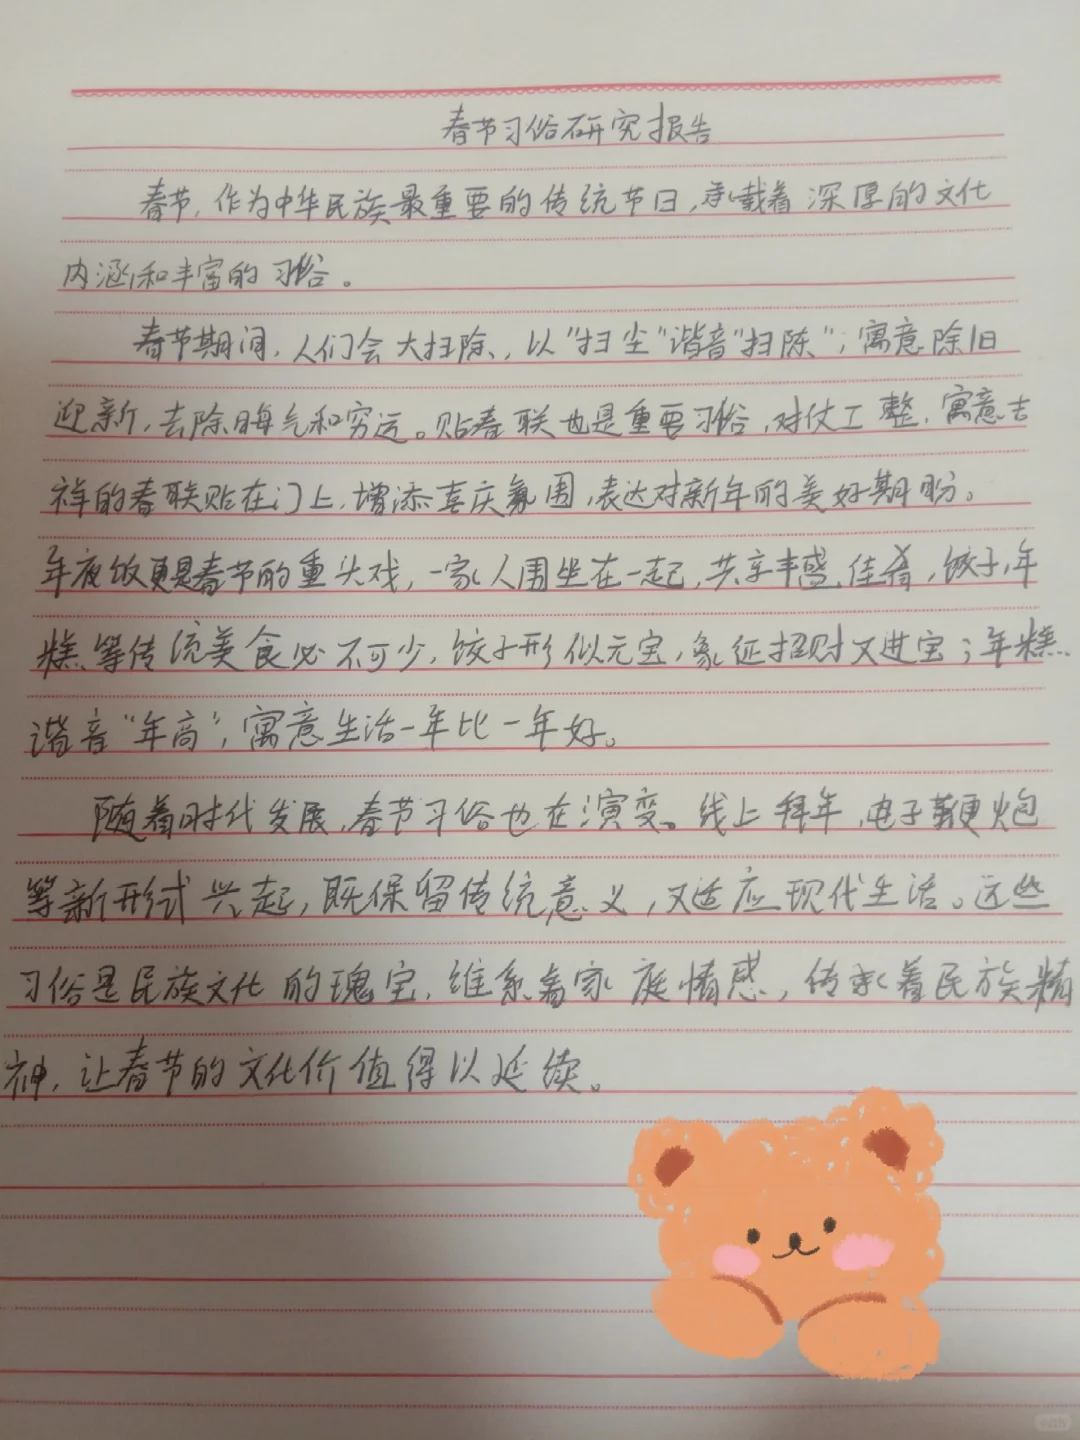 春节习俗研究报告
春节，作为中华民族最重要的传统节日，承载着深厚的文化
内涵和丰富的习俗。
春节期间，人们会大扫除、，以“扫尘”谐音“扫陈”，寓意除旧
迎新，去除晦气和穷运。贴春联也是重要习俗，对仗工整，寓意吉
祥的春联贴在门上，增添喜庆氛围，表达对新年的美好期盼。
年夜饭更是春节的重头戏，一家人围坐在一起，共享丰盛佳肴，饺子，年
糕等传统美食必不可少，饺子形似元宝，象征招财又进宝；年糕
谐音“年高”，寓意生活一年比一年好。
随着时代发展，春节习俗也在演变。线上拜年，电子鞭炮
等新形式兴起，既保留传统意义，又适应现代生活。这些
习俗是民族文化的瑰宝，维系着家庭情感，传承着民族精
神，让春节的文化价值得以延续。